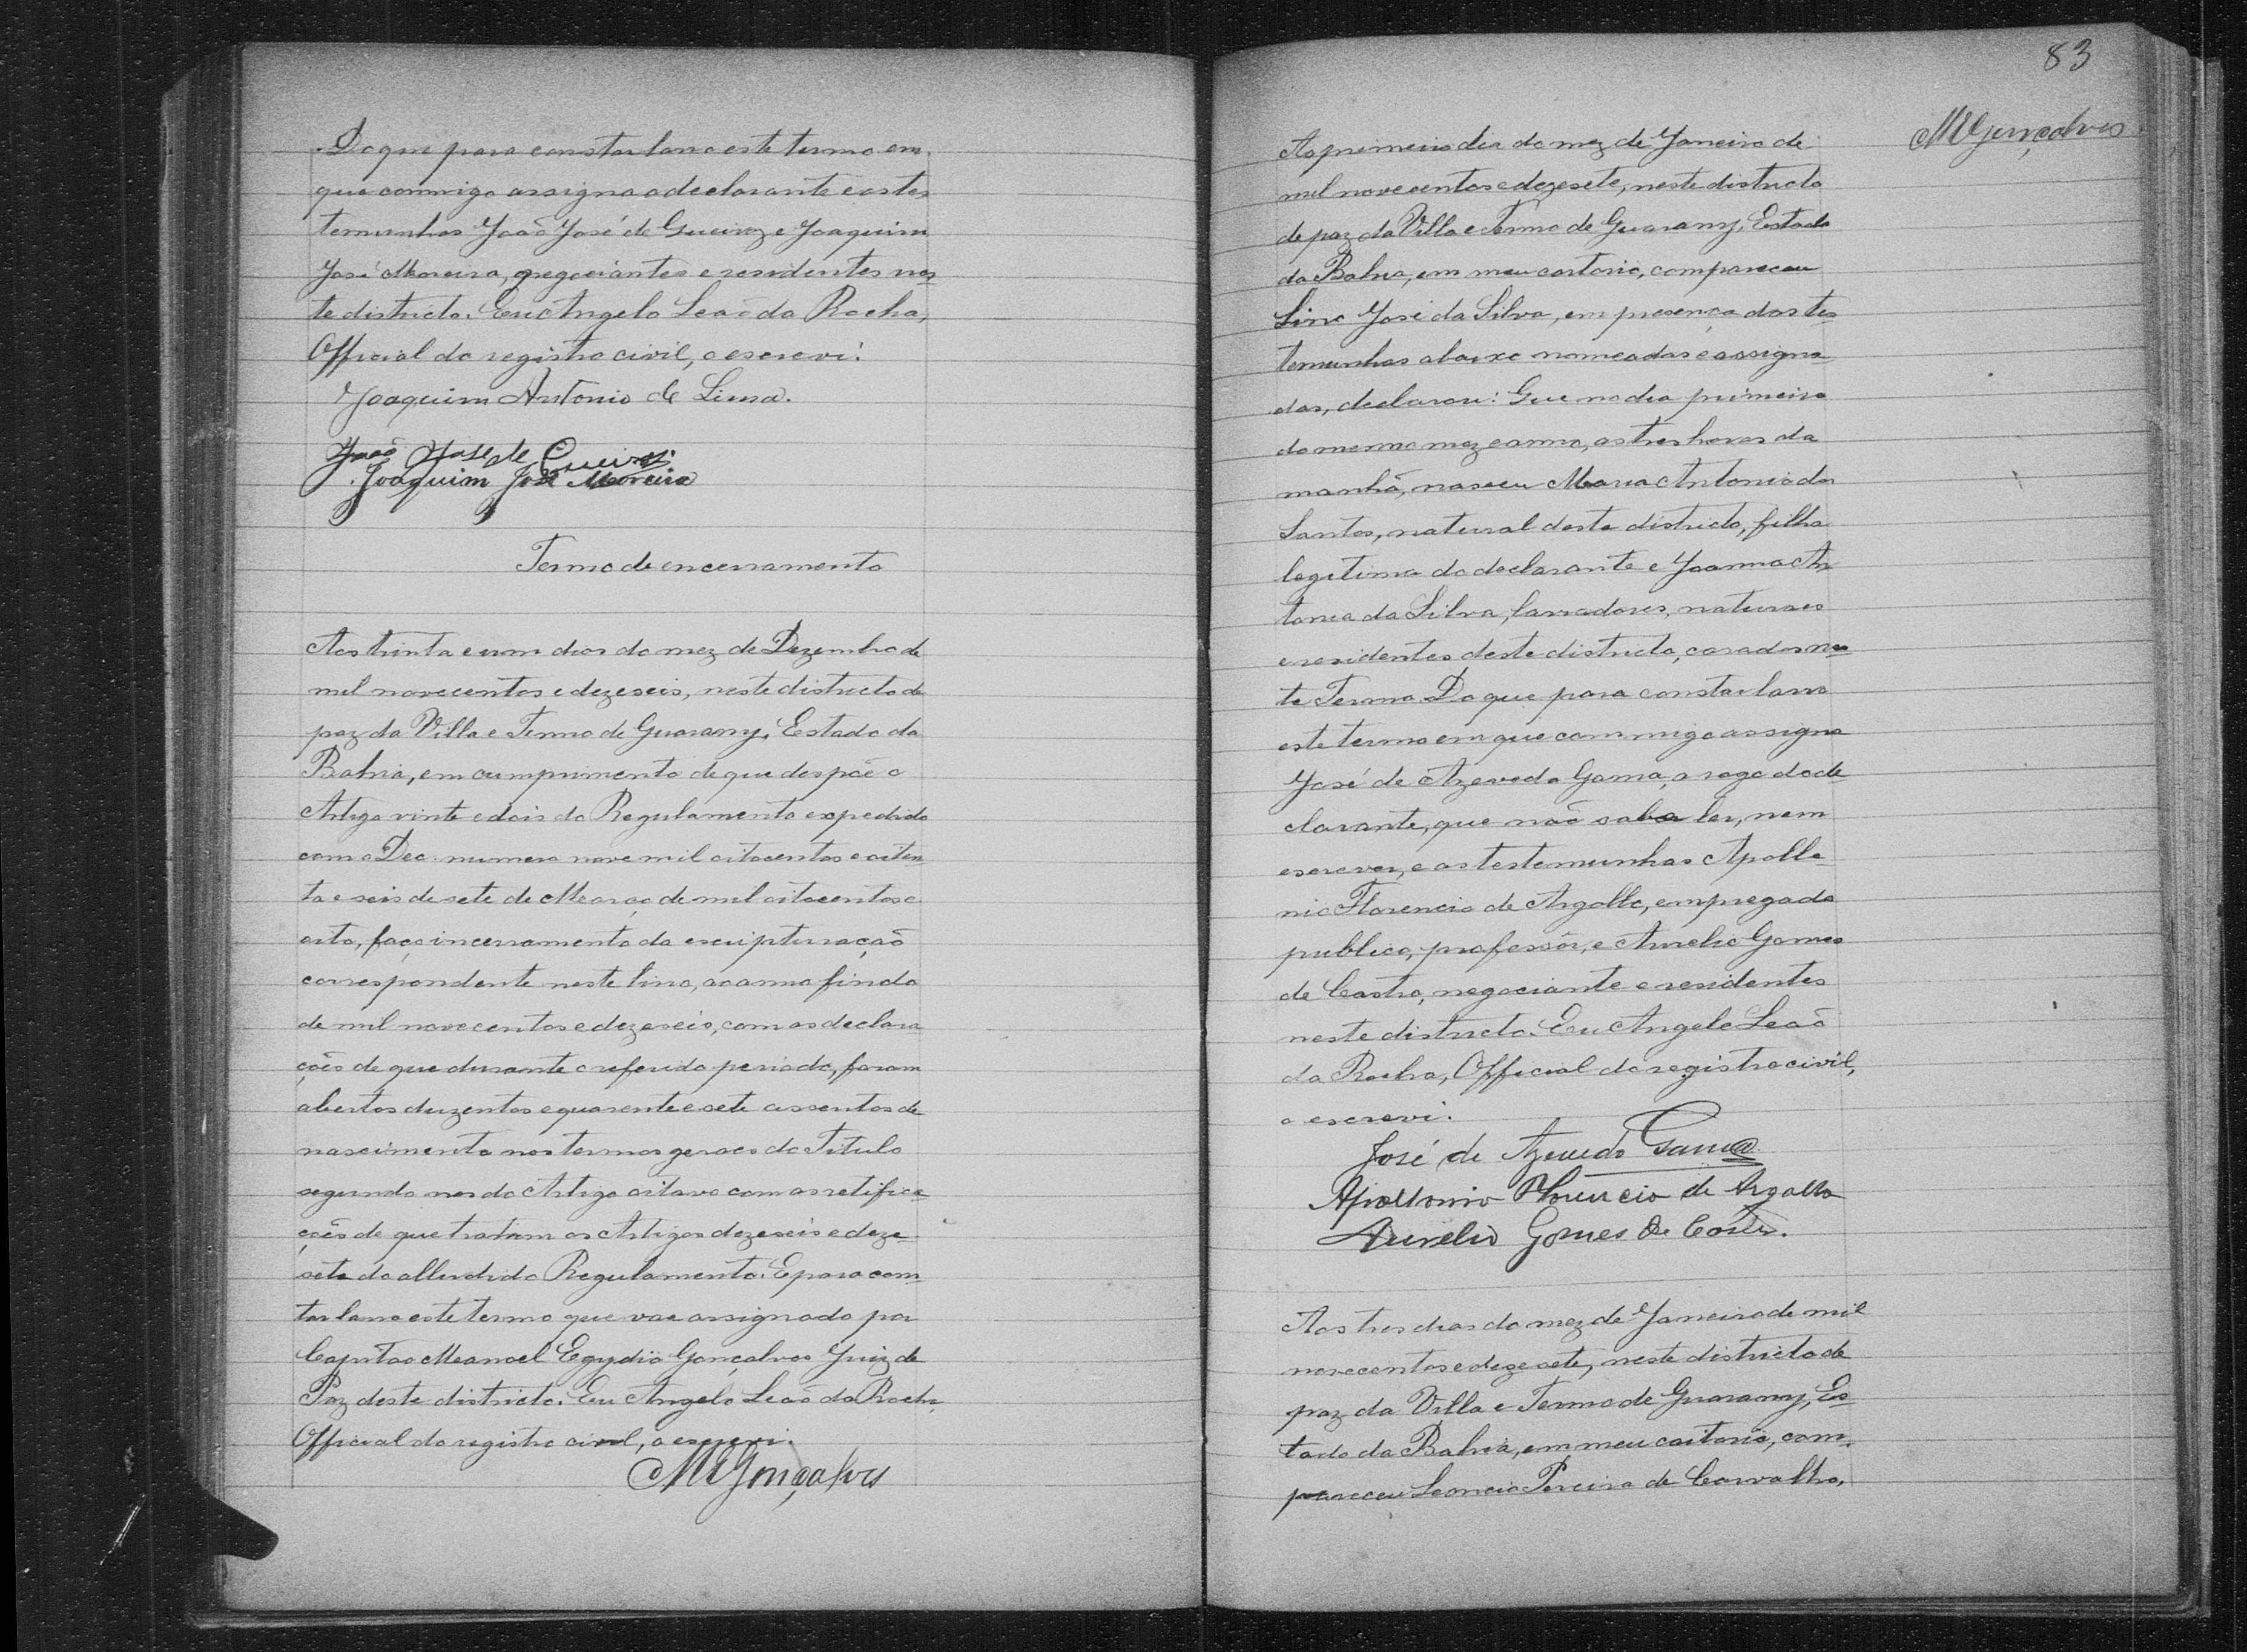 Do que para constar lavro este termo em
que commigo assigna o declarante e as tes
temunhas João José de Queiroz e Joaquim
José Moreira, negociantes e residentes nes
te districto. Eu Angelo Leão da Rocha,
Official do registro civil, o escrevi.
Joaquim Antonio de Lima.
João José de Queiroz.
Joaquim José Moreira
Termo de encerramento
Aos trinta e um dias do mez de Dezembro de
mil novecentos e dezeseis, neste districto de
paz da Villa e Termo de Guarany, Estado da
Bahia, em cumprimento de que despõe o
Artigo vinte e dois do Regulamento expedido
com o Dec. numero nove mil oitocentos e oiten
ta e seis de sete de Março de mil oitocentos e
oito, faço incerramento da escripturação
correspondente neste livro, ao anno findo
de mil novecentos e dezeseis, com as declara
ções de que durante o referido periodo, foram
abertos duzentos e quarenta e sete assentos de
nascimento nos termos geraes do Titulo
segundo nos do Artigo oitavo com as retifica
ções de que tratam os Artigos dezeseis e deze-
sete do alludido Regulamento. E para cons
tar lavro este termo que vae assignado por
Capitão Manoel Egydio Gonçalves Juiz de
Paz deste districto. Eu Angelo Leão da Rocha,
Official do registro civil, o escrevi.
MEGonçalves
83
MEGonçalves
Ao primeiro dia do mez de Janeiro de
mil novecentos e dezesete, neste districto
de paz da Villa e Termo de Guarany, Estado
da Bahia, em meu cartorio, compareceu
Lino José da Silva, em presença das tes
temunhas abaixo nomeadas e assigna
das, declarou: Que no dia primeiro
do mesmo mez e anno, as tres horas da
manhã, nasceu Maria Antonia dos
Santos, natural deste districto, filha
legitima do declarante e Joanna An
tonia da Silva, lavradores, naturaes
e residentes deste districto, casados nes
te Termo. Do que para constar lavro
este termo em que commigo assigna
José de Azevedo Gama, a rogo do de
clarante, que não sabe ler, nem
escrever, e as testemunhas Apollo
nio Florencio de Argollo, empregado
publico, professôr, e Aurelio Gomes
de Castro, negociante e residentes
neste districto. Eu Angelo Leão
da Rocha, Official do registro civil,
o escrevi.
José de Azevedo Gama
Apollonio Florencio de Argollo
Aurelio Gomes de Castro.
Aos tres dias do mez de Janeiro de mil
novecentos e dezesete, neste districto de
paz da Villa e Termo de Guarany, Es
tado da Bahia, em meu cartorio, com
pareceu Leoncio Pereira de Carvalho,